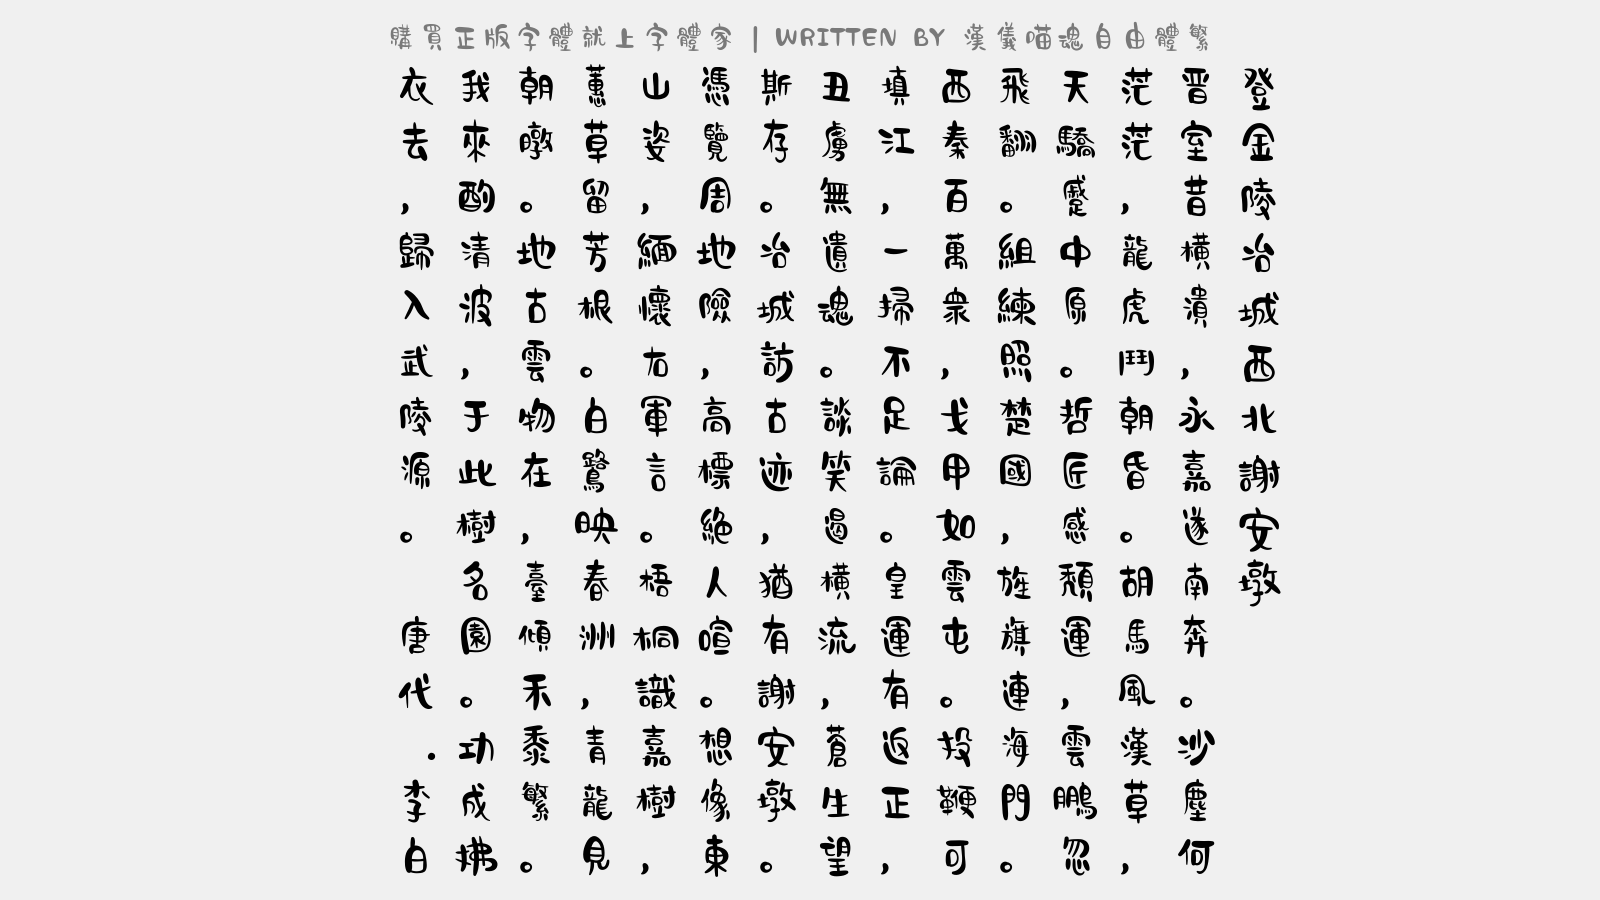 購買正版字體就上字體家 | WRITTEN BY 漢儀喵魂自由體繁
登金陵冶城西北謝安墩
晋室昔橫潰，永嘉遂南奔。沙塵何
茫茫，龍虎鬥朝昏。胡馬風漢草，
天驕蹙中原。哲匠感頹運，雲鵬忽
飛翻。組練照楚國，旌旗連海門。
西秦百萬衆，戈甲如雲屯。投鞭可
填江，一掃不足論。皇運有返正，
丑虜無遺魂。談笑遏橫流，蒼生望
斯存。冶城訪古迹，猶有謝安墩。
憑覽周地險，高標絶人喧。想像東
山姿，緬懷右軍言。梧桐識嘉樹，
蕙草留芳根。白鷺映春洲，青龍見
朝暾。地古雲物在，臺傾禾黍繁。
我來酌清波，于此樹名園。功成拂
衣去，歸入武陵源。 唐代·李白